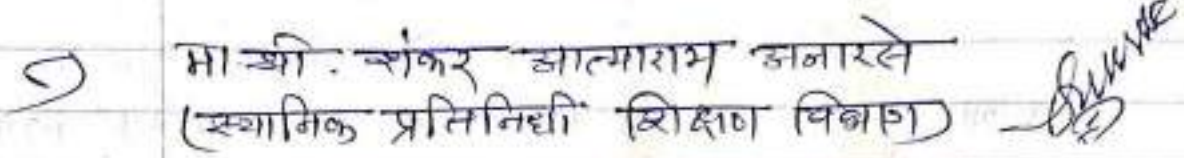 ७ मा श्री. शंकर आत्माराम अनारसे
(स्थानिक प्रतिनिधी शिक्षण विभाग)